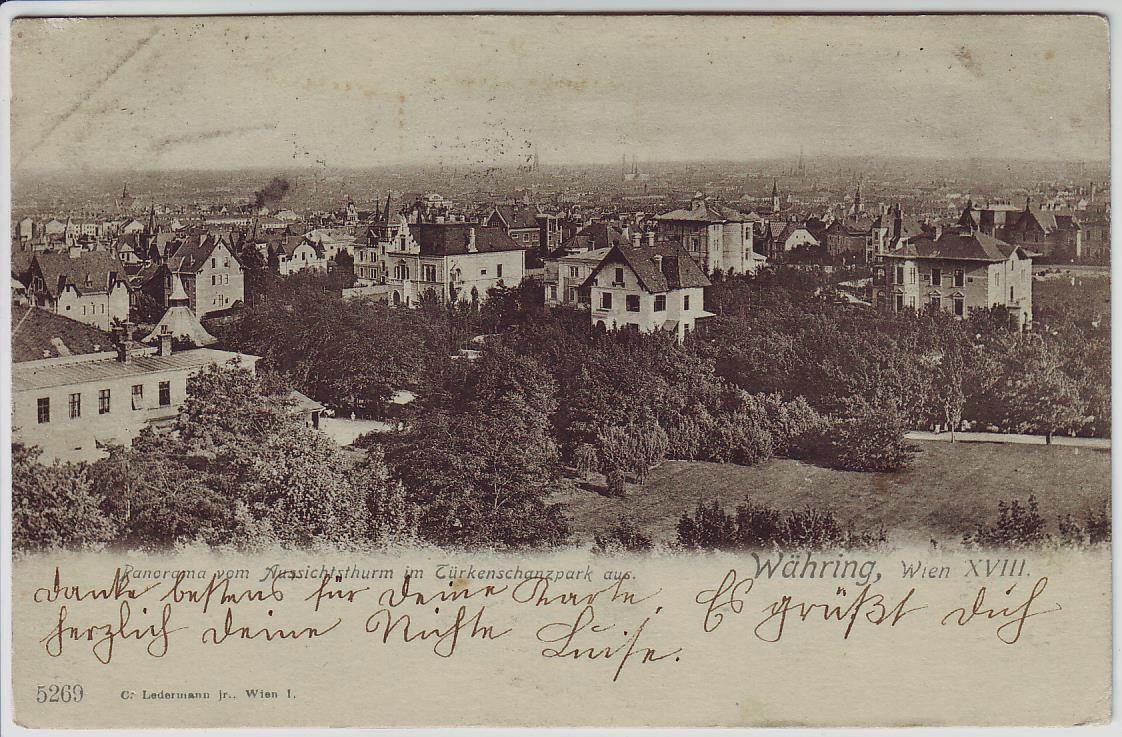 Panorama vom Aussichtsthurm im Türkenschanzpark aus.
Währing, Wien XVIII.
Danke bestens für Deine Karte. Es grüßt Dich
herzlich Deine Nichte Luise.
5269
C. Ledermann jr., Wien I.